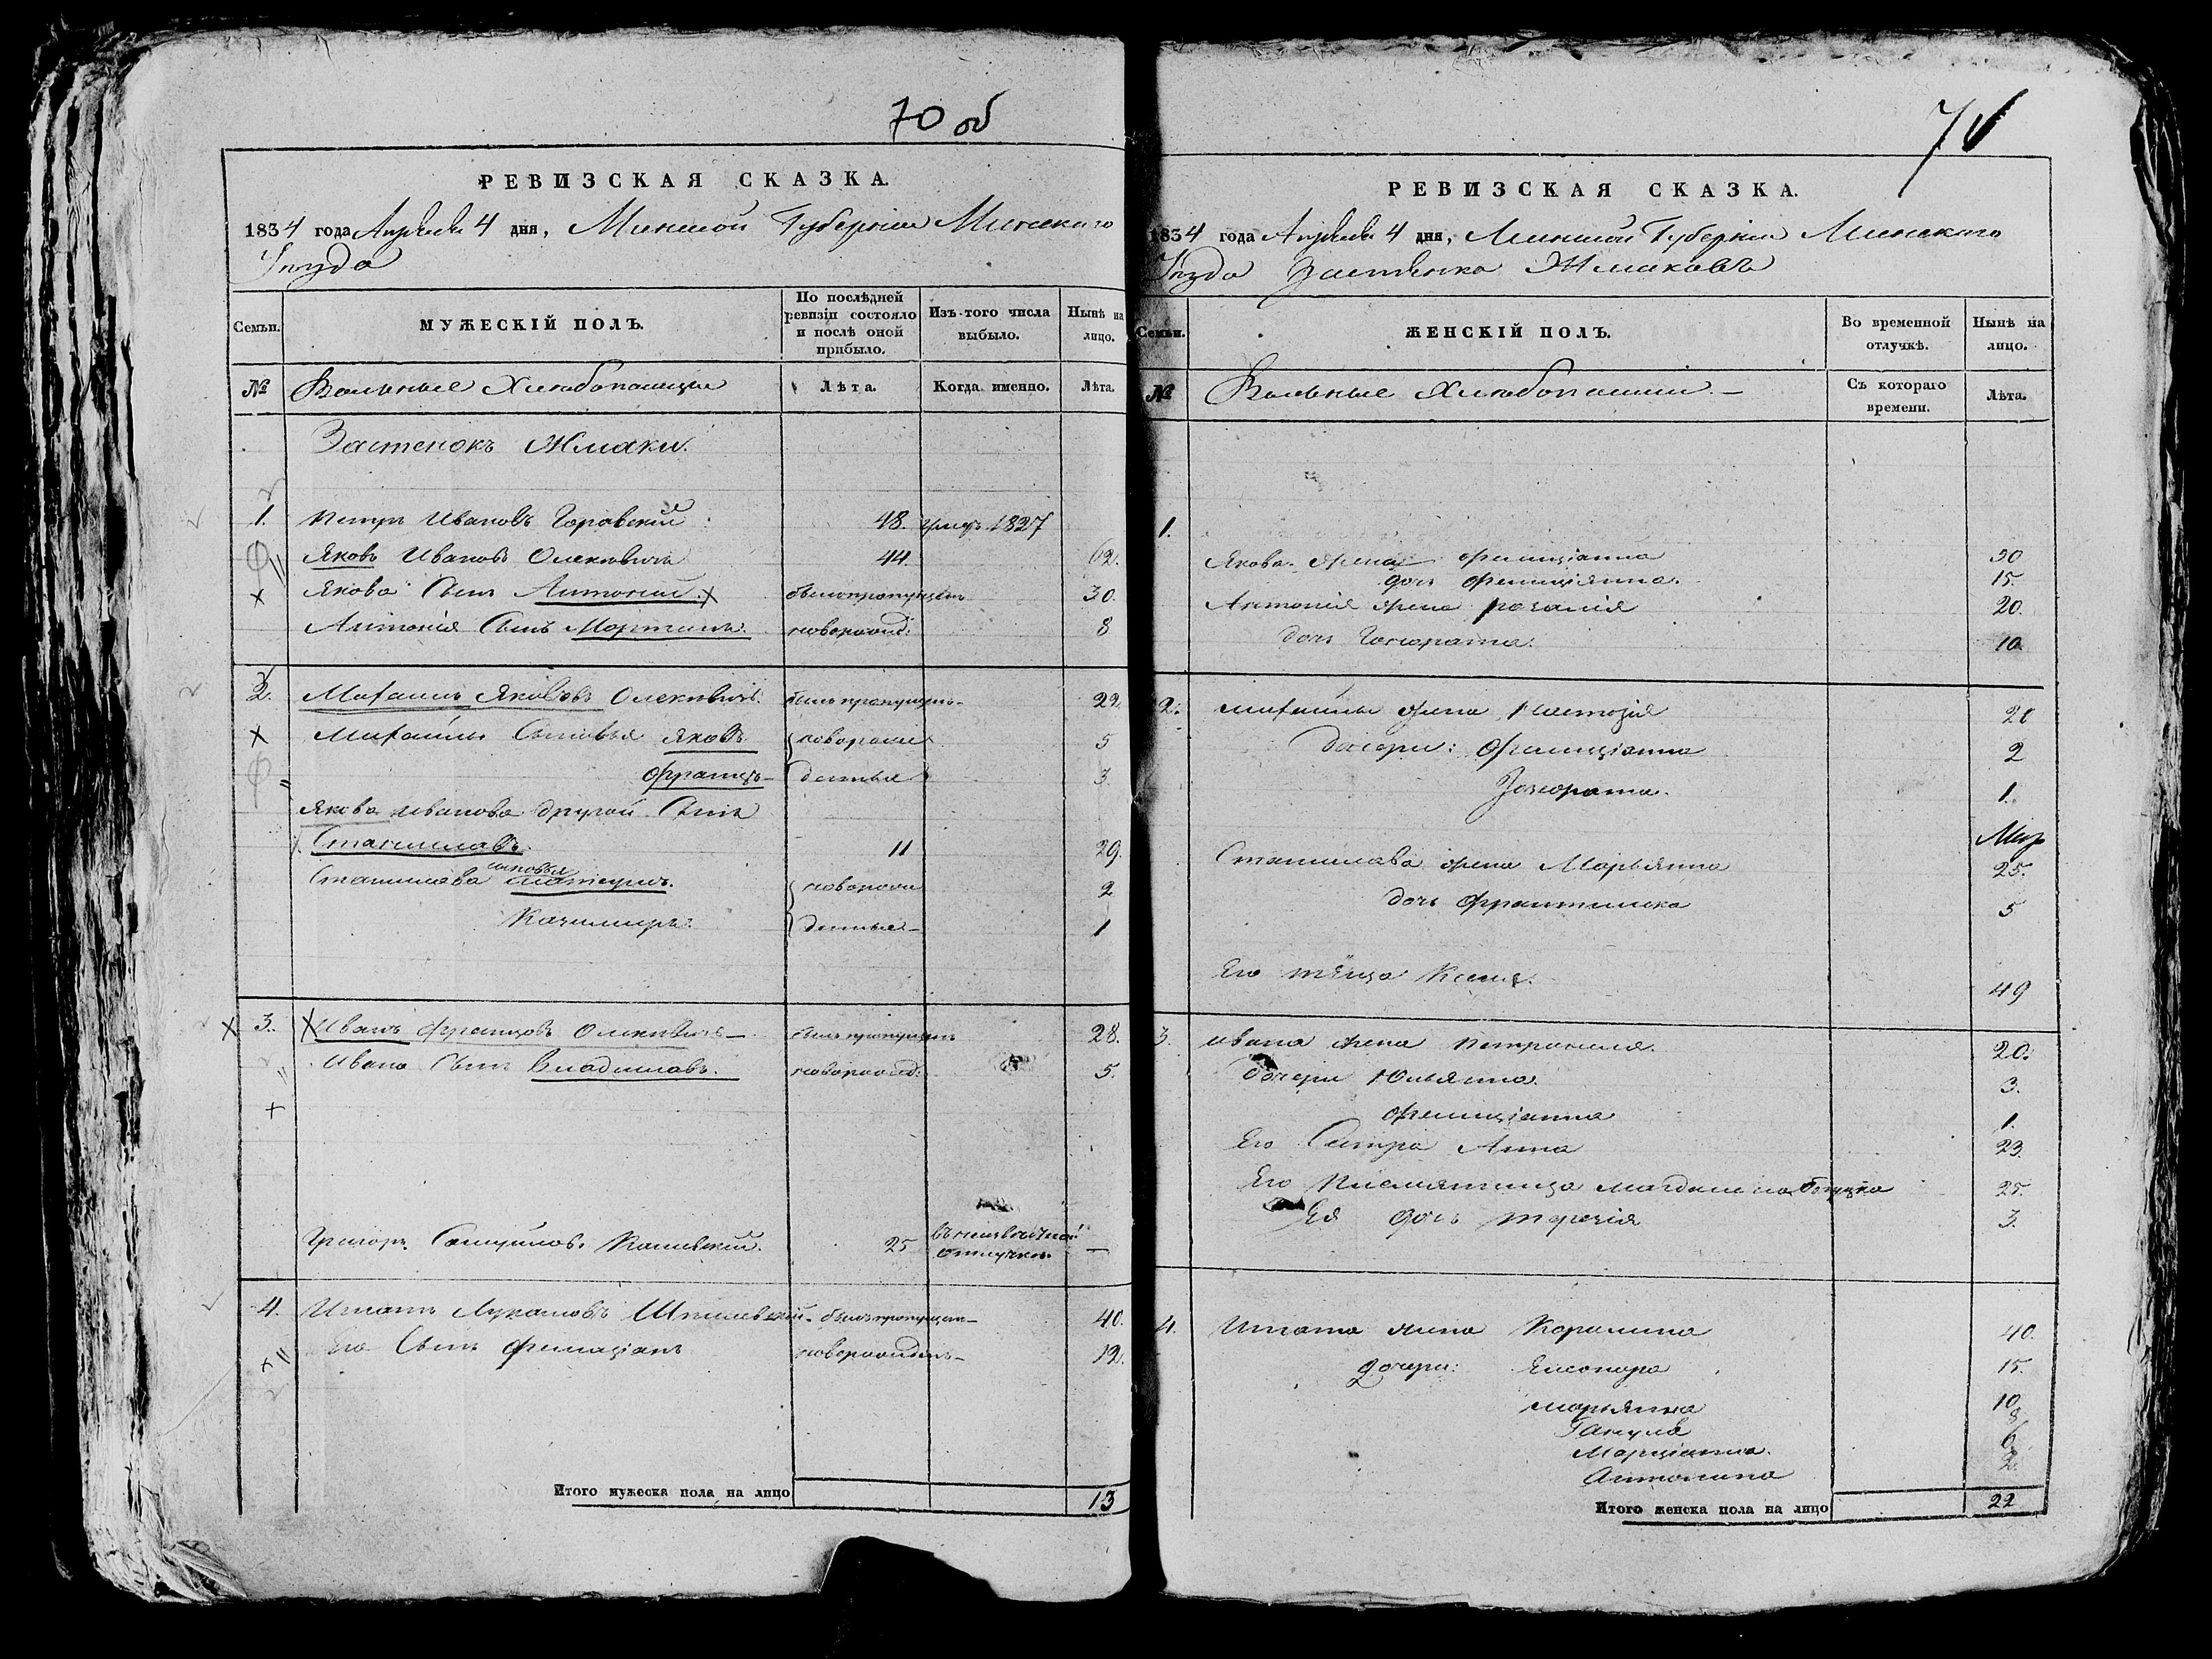 70 об
РЕВИЗСКАЯ СКАЗКА.
1834 года Апреля 4 дня, Минской Губернии Минского
Уезда
Семьи.
МУЖЕСКІЙ ПОЛЪ.
По послѣдней ревизіи состояло и послѣ оной прибыло.
Изъ того числа выбыло.
Нынѣ на лицо.
№
Вольные Хлебопашцы
Лѣта.
Когда именно.
Лѣта.
Застенокъ Жмаки.
1. Петръ Ивановъ Горавскій 48. умеръ 1827
Яковъ Ивановъ Олехновичъ 44. 62.
Якова Сынъ Антоній былъ пропущенъ 30.
Антонія Сынъ Мартинъ. новорожд: 8
2. Михаилъ Яковлевъ былъ пропущенъ 22.
Михайлы Сыновья Яковъ новорож 5
Францъ денные 3
Якова Иванова другой Сынъ
Станиславъ. 11 29.
Станислава сыновья новорож 2
Казимиръ. денные 1
3. Иванъ Францовъ былъ пропущенъ 28.
Ивана Сынъ Владиславъ. новорожд: 5.
Григоръ 25 отлучке —
4. Игнатъ былъ пропущен 40.
Его Сынъ Фелиціанъ новорожденъ 12.
Итого мужеска пола на лицо 13
71
РЕВИЗСКАЯ СКАЗКА.
1834 года Апреля 4 дня, Минской Губерніи Минского
Уезда Застенка Жмаковъ
Семьи.
ЖЕНСКІЙ ПОЛЪ.
Во временной отлучкѣ.
Нынѣ на лицо.
№
Вольные Хлебопашцы
Съ котораго времени.
Лѣта.
1.
Якова жена Фелиціанна 50
дочь Фелиціянна. 15.
Антонія жена Розалія 20.
дочь Гонората. 10
2. Михайлы жена 20
дочери: Фелиціанна 2
Гонората. 1.
Станислава жена Марьянна 25.
дочь Франтишка 5
Его тёща Ксеня. 49
3. Ивана жена Петронеля. 20.
дочери Юльянна. 3.
Фелиціанна 1.
Его Сестра Анна 23.
Его Племянница 25.
Ея дочь Терезія 3.
4. Игната жена Каролина 40.
дочери: Елеонора 15.
Марьянна 10
8
Марціанна. 6
Антонина 2.
Итого женска пола на лицо 22